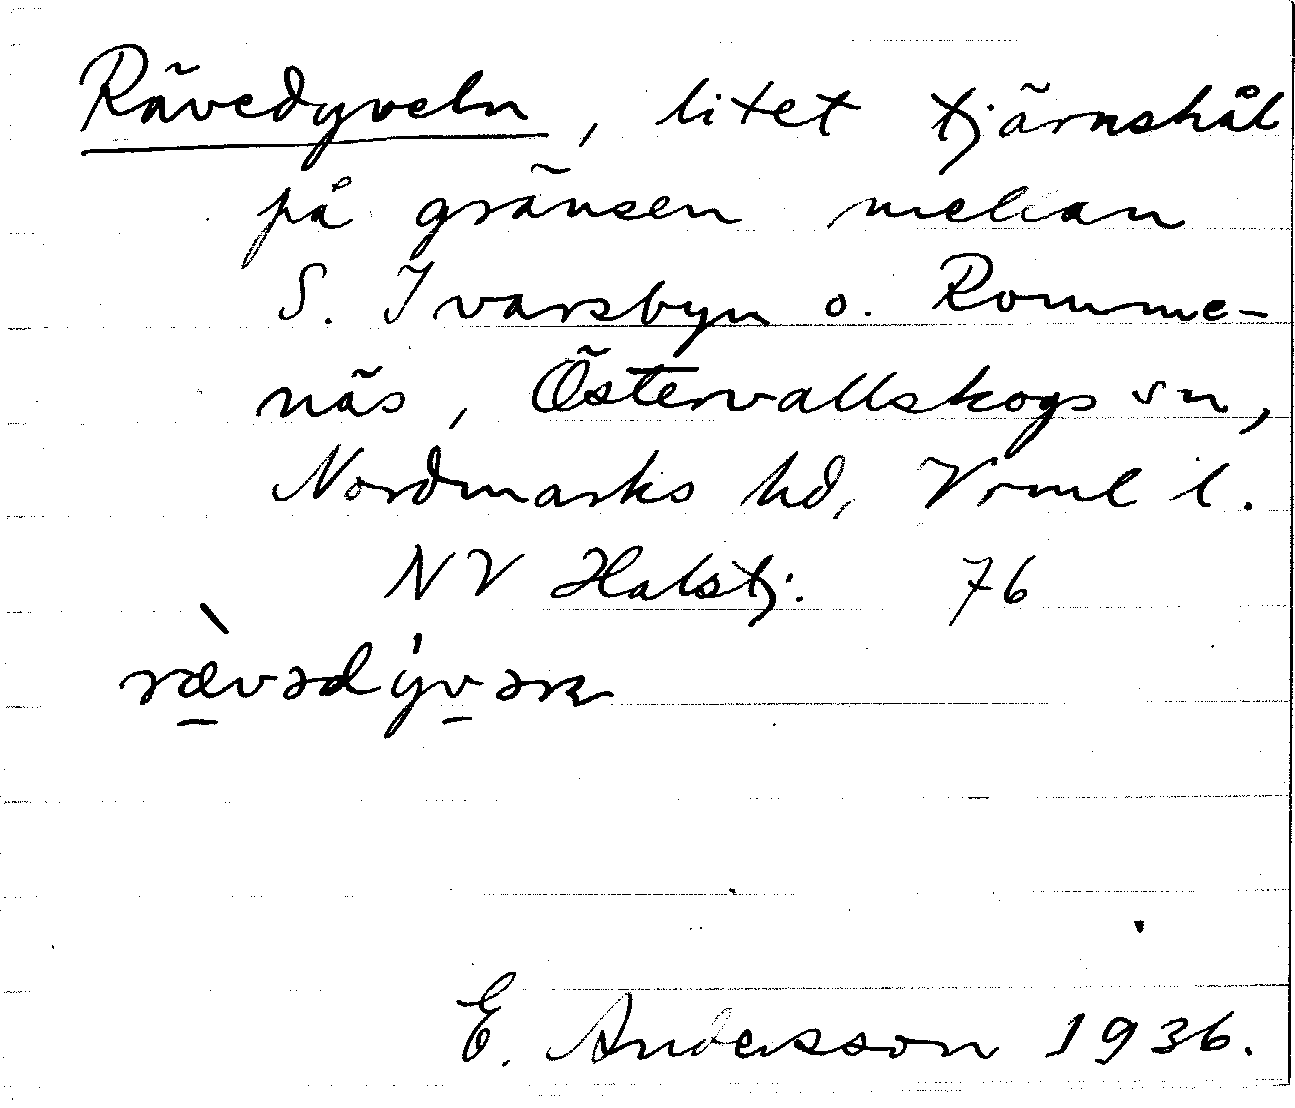 Rävedyveln, litet tjärnshål
på gränsen mellan
S. Ivarsbyn o. Romme-
näs, Östervallskogs sn,
Nordmarks hd, Vrml l.
NV Halstj. 76
E. Andersson 1936.